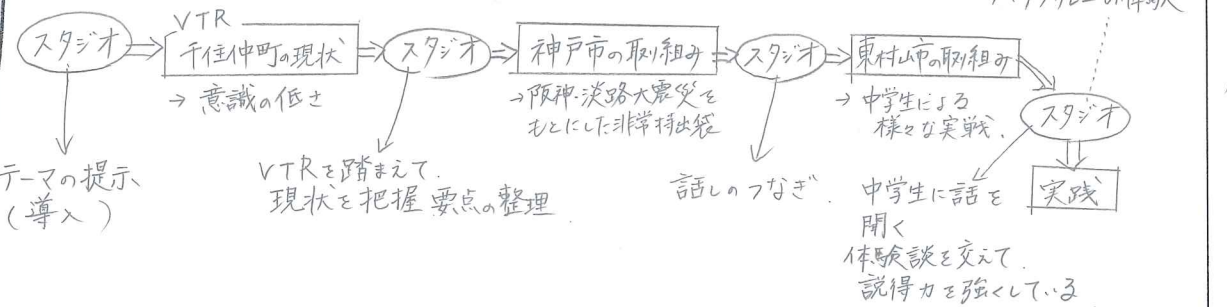 VTR
スタジオ
千住仲町の現状
スタジオ
神戸市の取り組み
スタジオ
東村山市の取組み
→ 意識の低さ
→阪神・淡路大震災を
もとにした非常持出袋
→ 中学生による
様々な実戦.
スタジオ
テーマの提示
(導入)
VTRを踏まえて.
現状を把握 要点の整理
話しのつなぎ.
中学生に話を
聞く
体験談を交えて.
説得力を強くしている
実践